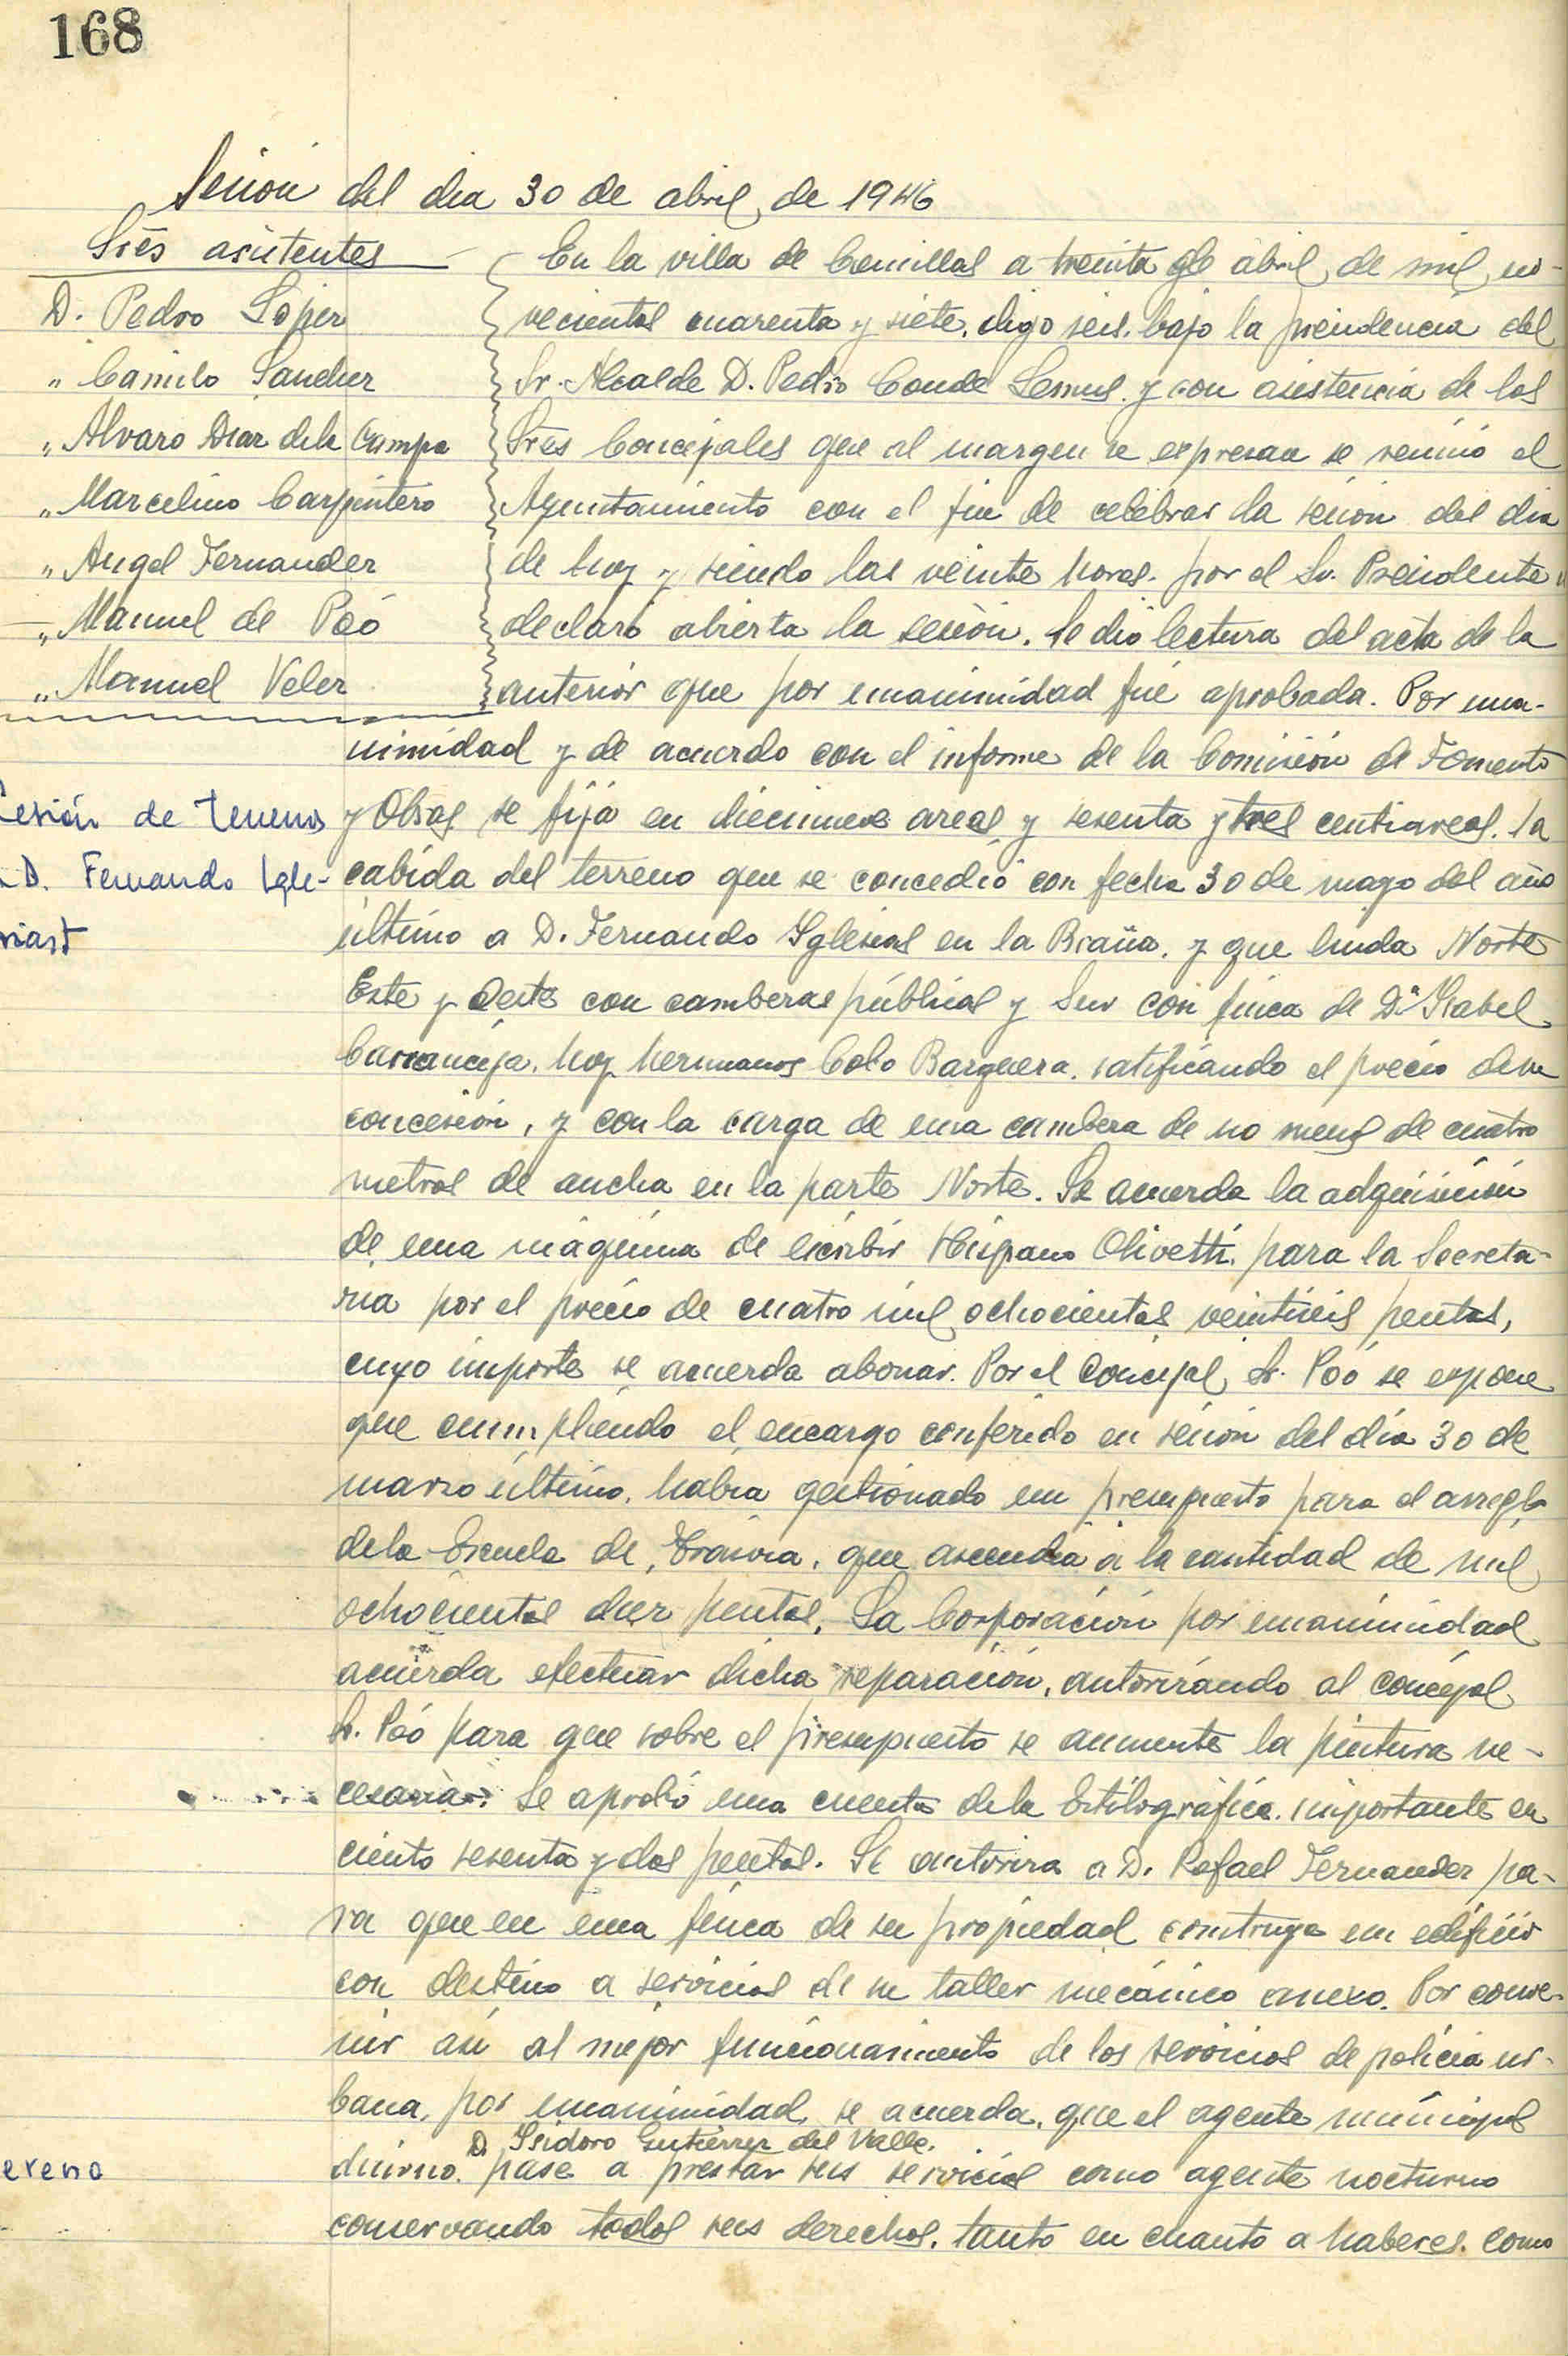 168
Sesión del dia 30 de abril de 1946
Srēs asistentes
D. Pedro López
„ Camilo Sanchez
„ Alvaro Diaz dela Campa
„ Marcelino Carpintero
„ Angel Fernandez
„ Manuel de Poó
„ Manuel Velez
En la villa de Comillas a treinta de abril de mil no-
vecientos cuarenta y siete, digo seis. bajo la presidencia del
Sr. Alcalde D. Pedro Conde Lemus. y con asistencia de los
Srēs Concejales que al margen se expresan se reunió el
Ayuntamiento con el fin de celebrar la sesión del dia
de hoy y siendo las veinte horas. por el Sr. Presidente
declaró abierta la sesión. Se dió lectura del acta de la
anterior que por unanimidad fué aprobada. Por una-
nimidad y de acuerdo con el informe de la Comisión de Fomento
y Obras se fija en diecinueve areas y sesenta y tres centiareas. la
cabida del terreno que se concedió con fecha 30 de mayo del año
último a D. Fernando Iglesias en la Braña. y que linda Norte
Este y Oeste con camberas públicas y Sur con finca de Dª Isabel
Carranceja. hoy hermanos Cobo Barquera. ratificando el precio de su
concesión, y con la carga de una cambera de no menos de cuatro
metros de ancha en la parte Norte. Se acuerda la adquisición
de una máquina de escribir Hispano Olivetti. para la Secreta-
ria por el precio de cuatro mil ochocientas veintiseis pesetas,
cuyo importe se acuerda abonar. Por el Concejal Sr. Poó se expone
que cumpliendo el encargo conferido en sesión del día 30 de
marzo último. habia gestionado un presupuesto para el arreglo
dela Escuela de Trasvia, que ascendia a la cantidad de mil
ochocientas diez pesetas. La Corporación por unanimidad
acuerda efectuar dicha reparación, autorizando al concejal
Sr. Poó para que sobre el presupuesto se aumente la pintura ne-
cesaria. Se aprobó una cuenta dela Estilográfica. importante en
ciento sesenta y dos pesetas. Se autoriza a D. Rafael Fernandez pa-
ra que en una finca de su propiedad construya un edificio
con destino a servicios de su taller mecánico anexo. Por conve-
nir asi al mejor funcionamiento de los servicios de policia ur-
bana, por unanimidad se acuerda. que el agente municipal
D. Isidoro Gutiérrez del Valle.
diurno. pase a prestar sus servicios como agente nocturno
conservando todos sus derechos. tanto en cuanto a haberes. como
Cesión de terrenos
D. Fernando Igle-
sias
ereno